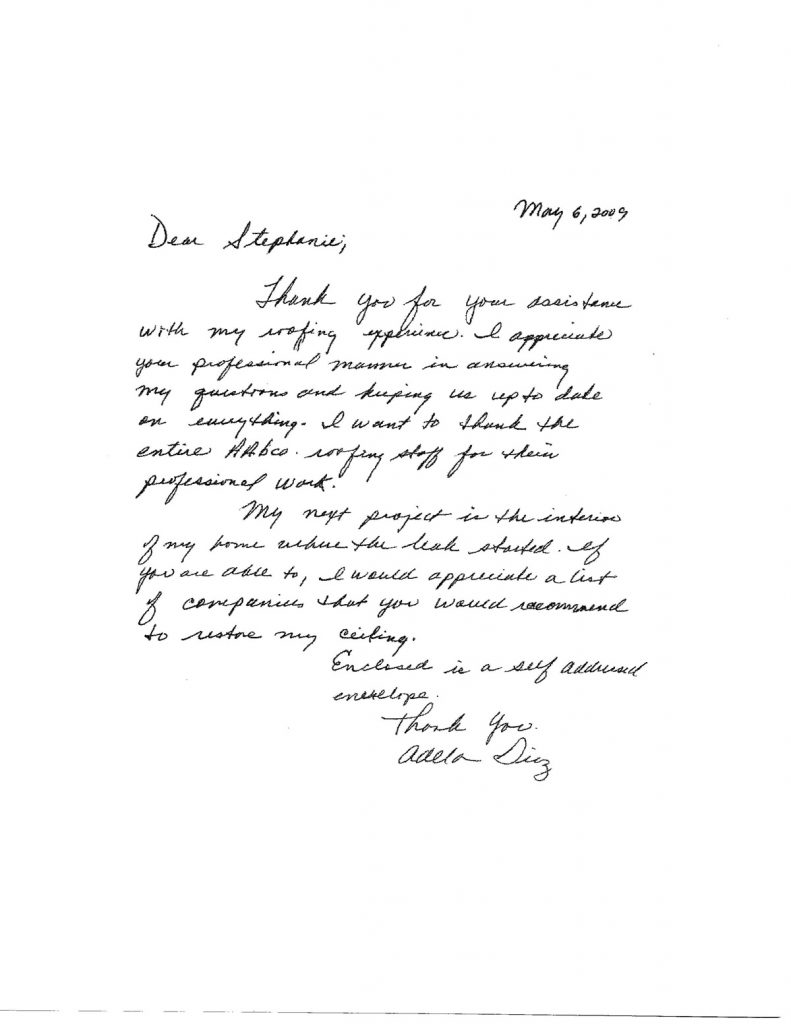 May 6, 2009
Dear Stephanie,
Thank you for your assistance
with my roofing experience. I appreciate
your professional manner in answering
my questions and keeping us up to date
on everything. I want to thank the
entire AAbco. roofing staff for their
professional work.
My next project is the interior
of my home where the leak started. If
you are able to, I would appreciate a list
of companies that you would recommend
to restore my ceiling.
Enclosed is a self addressed
envelope.
Thank You.
Adela